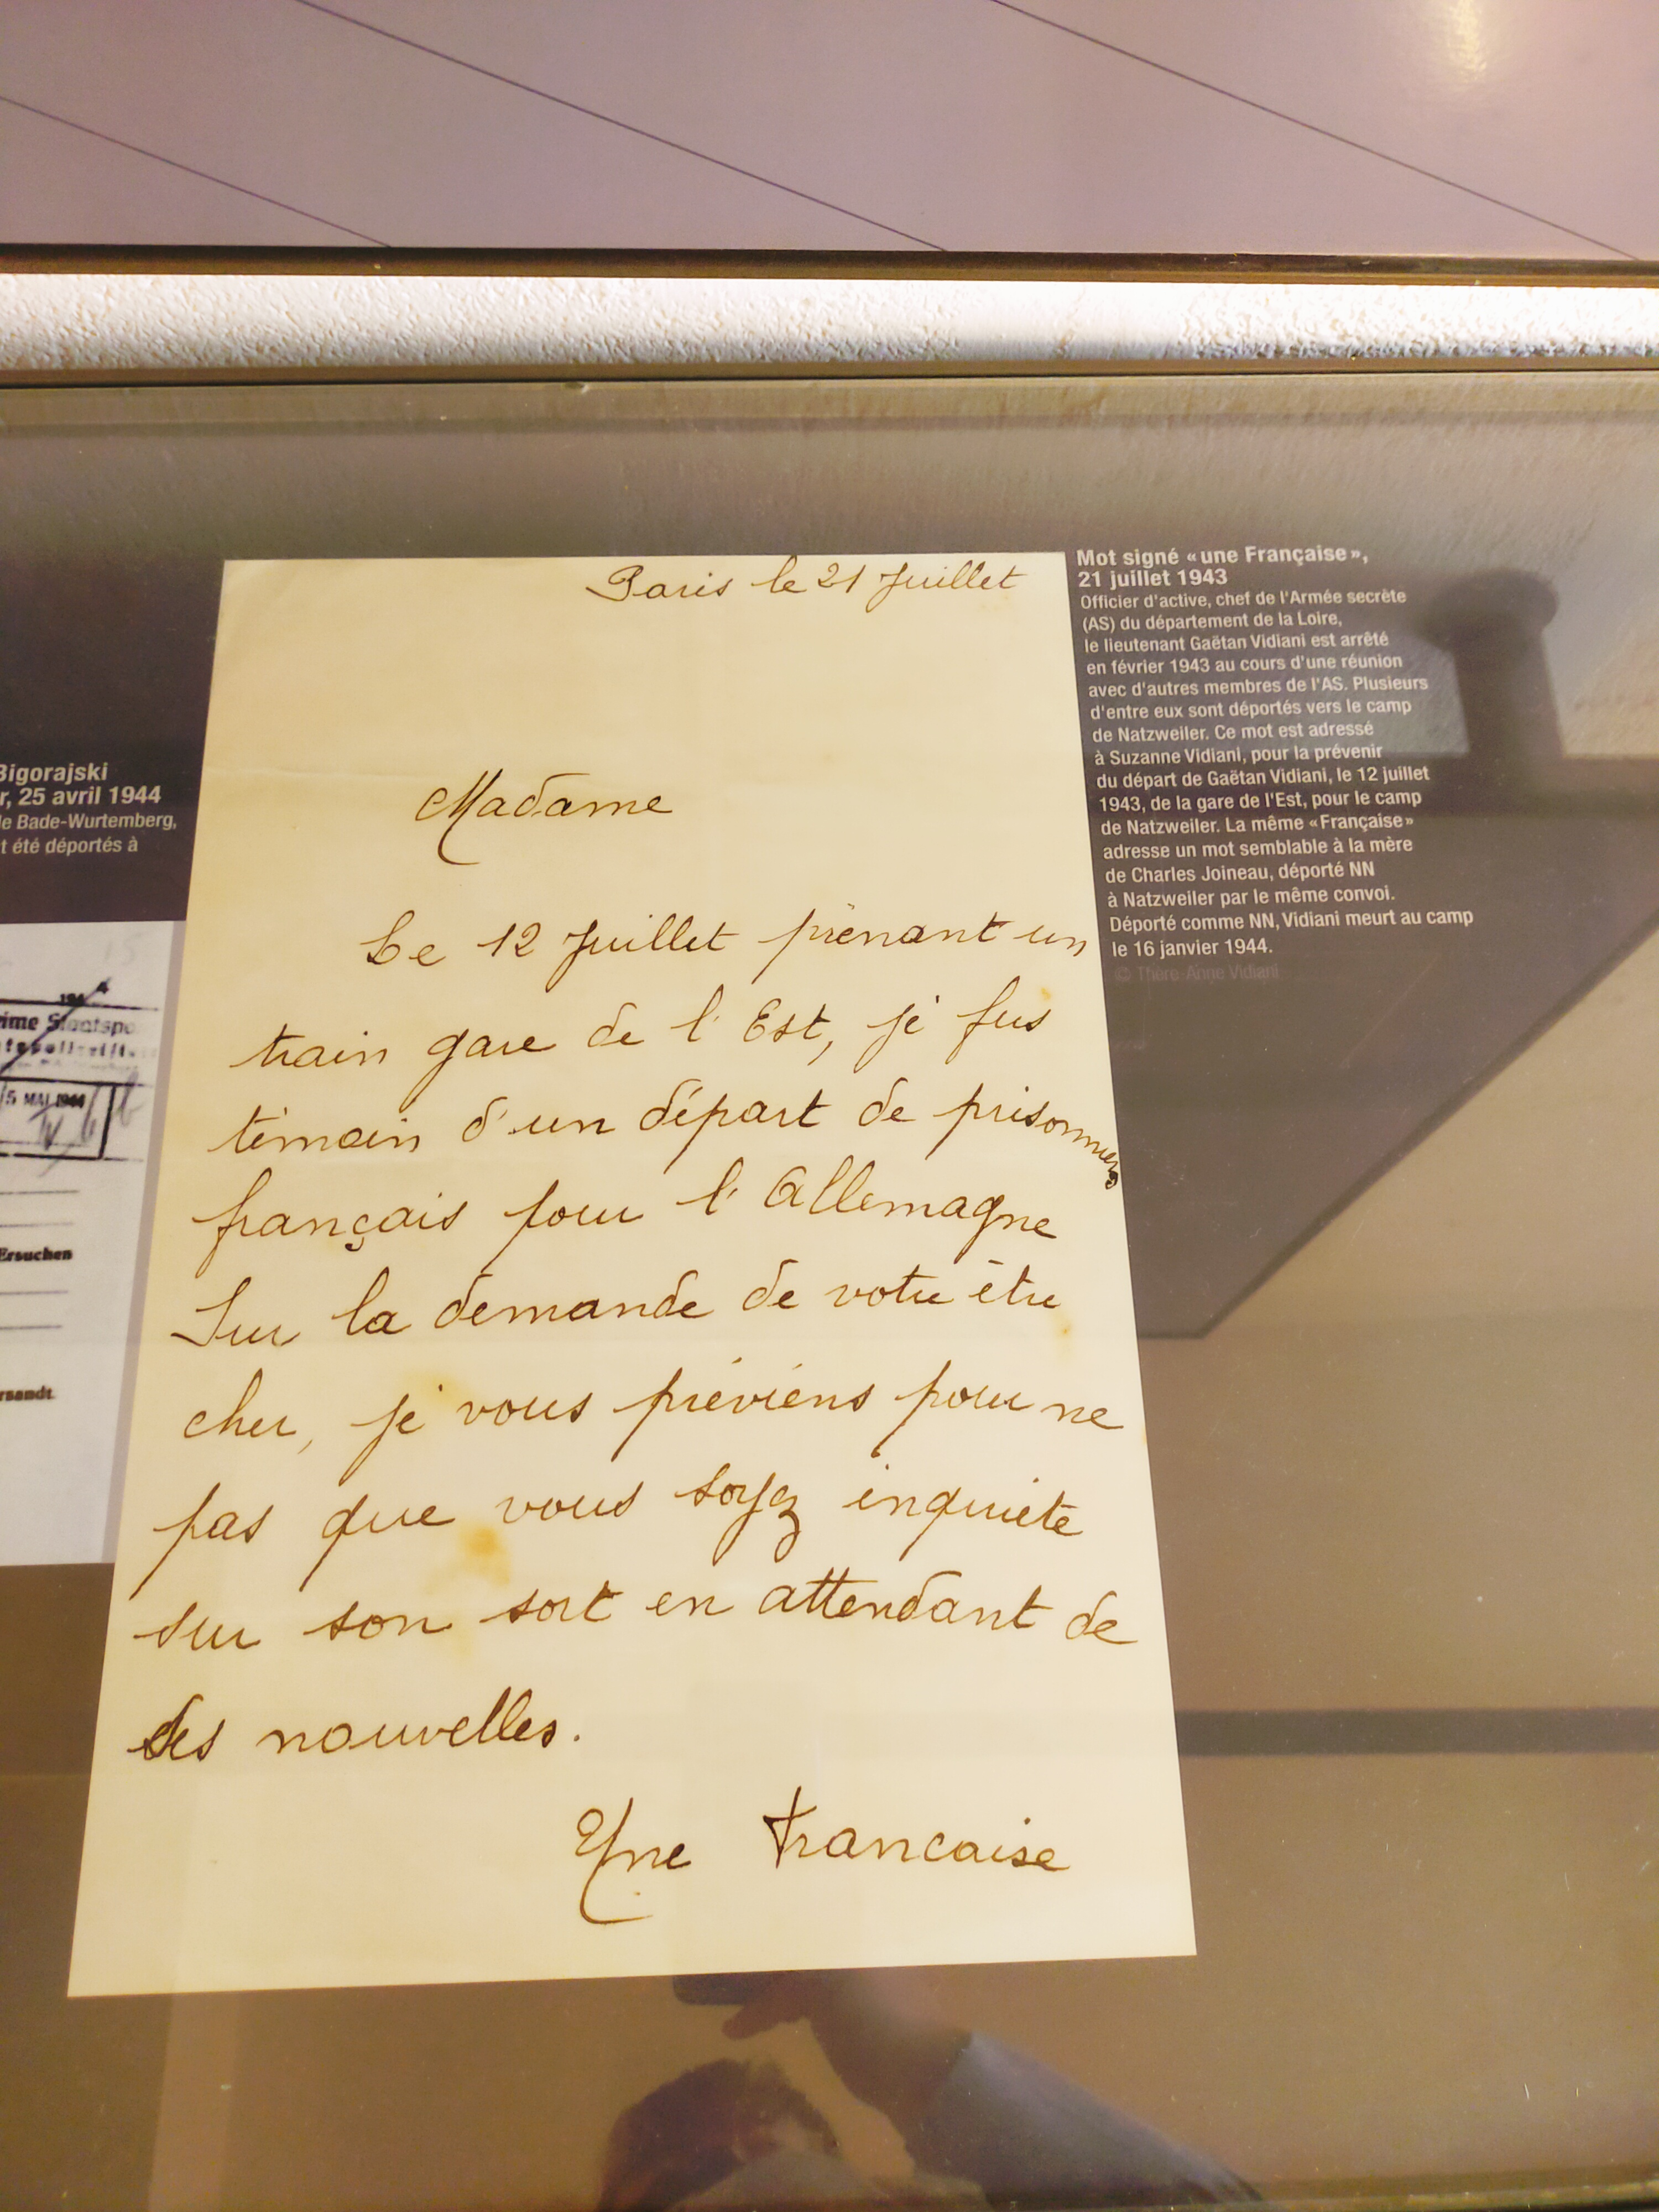 Paris le 21 Juillet
Madame
Le 12 Juillet prénant un
train gare de l'Est, je fus
témoin d'un départ de prisonniers
français pour l'Allemagne
Sur la demande de votre être
cher, je vous préviens pour ne
pas que vous soyez inquiete
sur son sort en attendant de
ses nouvelles.
Une Francaise
Mot signé «une Française»,
21 juillet 1943
Officier d'active, chef de l'Armée secrète
(AS) du département de la Loire,
le lieutenant Gaëtan Vidiani est arrêté
en février 1943 au cours d'une réunion
avec d'autres membres de l'AS. Plusieurs
d'entre eux sont déportés vers le camp
de Natzweiler. Ce mot est adressé
à Suzanne Vidiani, pour la prévenir
du départ de Gaëtan Vidiani, le 12 juillet
1943, de la gare de l'Est, pour le camp
de Natzweiler. La même «Française»
adresse un mot semblable à la mère
de Charles Joineau, déporté NN
à Natzweiler par le même convoi.
Déporté comme NN, Vidiani meurt au camp
le 16 janvier 1944.
© Anne Vidiani
Bigorajski
r, 25 avril 1944
le Bade-Wurtemberg,
t été déportés à
15
194 4
eime Staatspo
5 MAI 1944
Ersuchen
rsandt